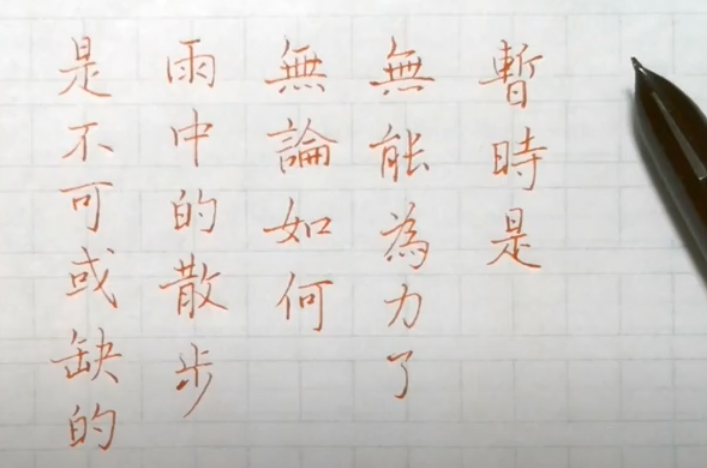 暫時是
無能為力了
無論如何
雨中的散步
是不可或缺的